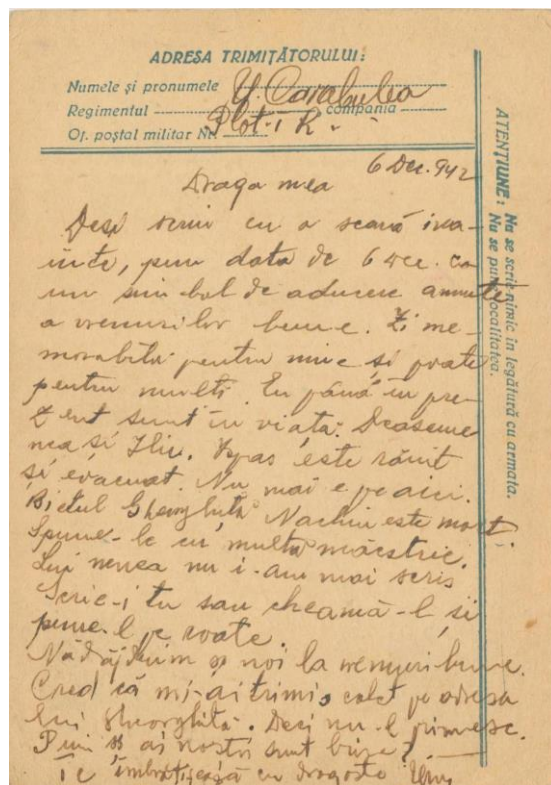 ADRESA TRIMIȚĂTORULUI:
Numele și pronumele Carabulea
Regimentul compania
Of. poștal militar Nr. Plot-I R.
ATENȚIUNE: Nu se scrie nimic în legătură cu armata.
Nu se pune localitatea.
6 Dec. 942
Draga mea
Deși scriu cu o seară îna-
inte, pun data de 6 Dec. ca
un simbol de aducere aminte
a vremurilor bune. Zi me-
morabilă pentru mine și poate
pentru mulți. Eu până în pre-
zent sunt în viață. Deaseme-
nea și Ilie. este rănit
și evacuat. Nu mai e pe aici.
Bietul Gheorghiță Nachiu este mort.
Spune-le cu multă măestrie.
Lui nenea nu i-am mai scris
Scrie-i tu sau cheamă-l și
pune-l pe roate.
Nădăjduim și noi la vremuri bune.
Cred că mi-ai trimis colet pe adresa
lui Gheorghiță. Deci nu-l primesc.
și ai noștri sunt bine?
Te îmbrățișează cu dragoste